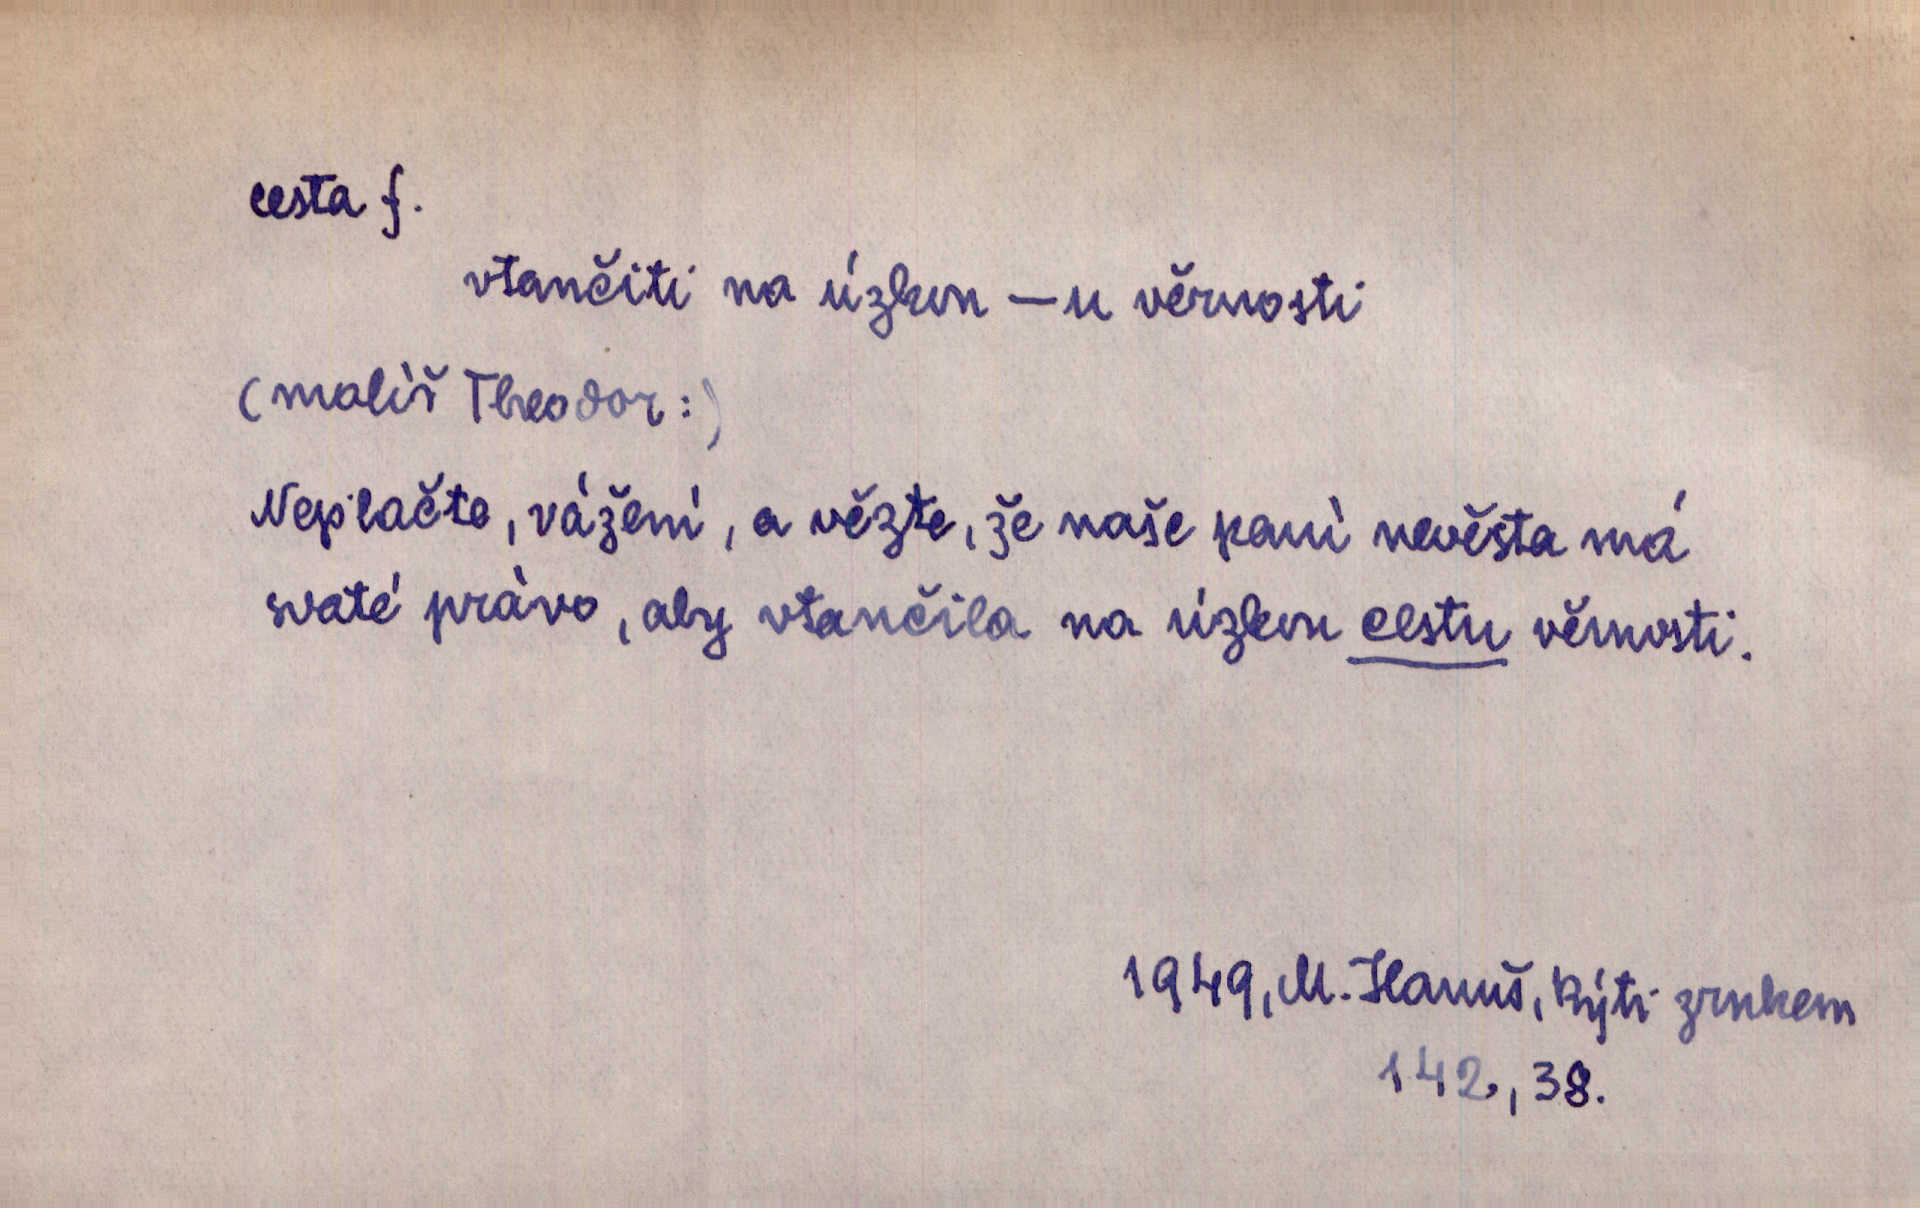 cesta f.
vtančiti na úzkou —u věrnosti
(mališ Theodor:)
Neplačte, vážení, a vězte, že naše paní nevěsta má
svaté právo, aby vtančila na úzkou cestu věrnosti.
1949, M. Hanuš, Býti zrnkem
142, 38.